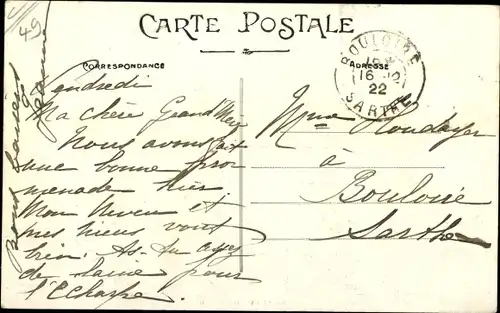 49
CARTE POSTALE
CORRESPONDANCE
ADRESSE
BOULOIRE
16
22
SARTHE
Vendredi
Ma chère Grand'Mère
Nous avons fait
une bonne pro
menade hier.
Mon Neveu et
mes nieces vont
bien. As-tu assez
de laine pour
l'Echarpe.
Bons baisers
Jeanne
Mme Houdayer
à
Bouloire
Sarthe